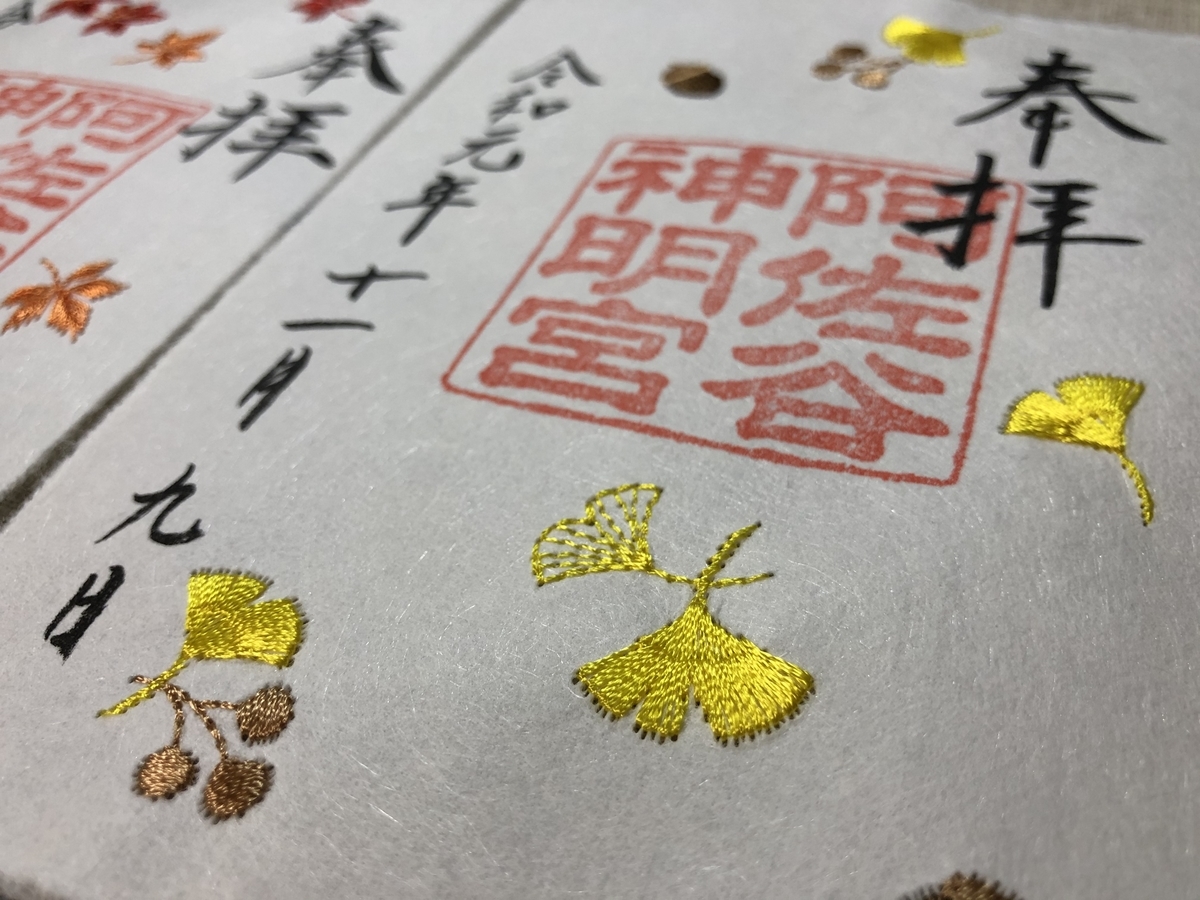 奉拝
阿佐谷
神明宮
令和元年十一月九日
奉拝
阿佐
神